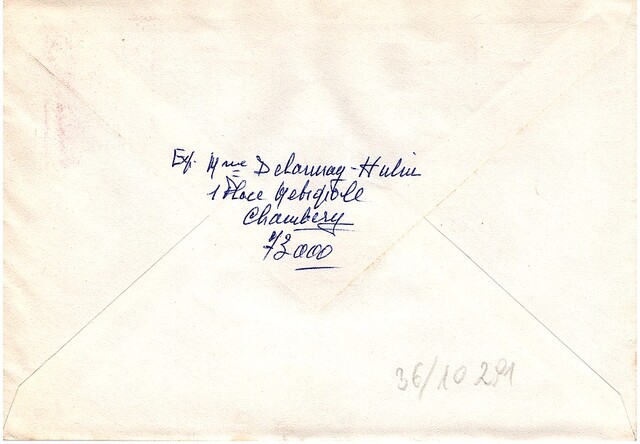 Exp. Mme Delaunay-Hulin
1 Place Métropole
Chambery
73000
36/10 291